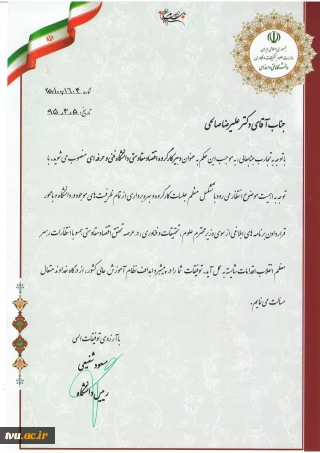 جمهوری اسلامی ایران
وزارت علوم، تحقیقات و فناوری
دانشگاه فنی و حرفه‌ای
تاریخ: ۹۵،۲،۵
جناب آقای دکتر علیرضا صالحی
با توجه به تجارب جنابعالی، به موجب این حکم به عنوان دبیر کارگروه اقتصاد مقاومتی دانشگاه فنی و حرفه ای منصوب می شوید. با
توجه به اهمیت موضوع انتظار می رود با تشکیل منظم جلسات کارگروه و بهره برداری از تمام ظرفیت های موجود در دانشگاه و با محور
قرار دادن برنامه های ابلاغی از سوی وزیر محترم علوم، تحقیقات و فناوری، در عرصه تحقق اقتصاد مقاومتی همسو با انتظارات رهبر
معظم انقلاب اقدامات شایسته به عمل آید. توفیقات شما را در پیشبرد اهداف نظام آموزش عالی کشور، از درگاه خداوند متعال
مسالت می نمایم.
با آرزوی توفیقات الهی
مسعود شفیعی
رییس دانشگاه
tvu.ac.ir